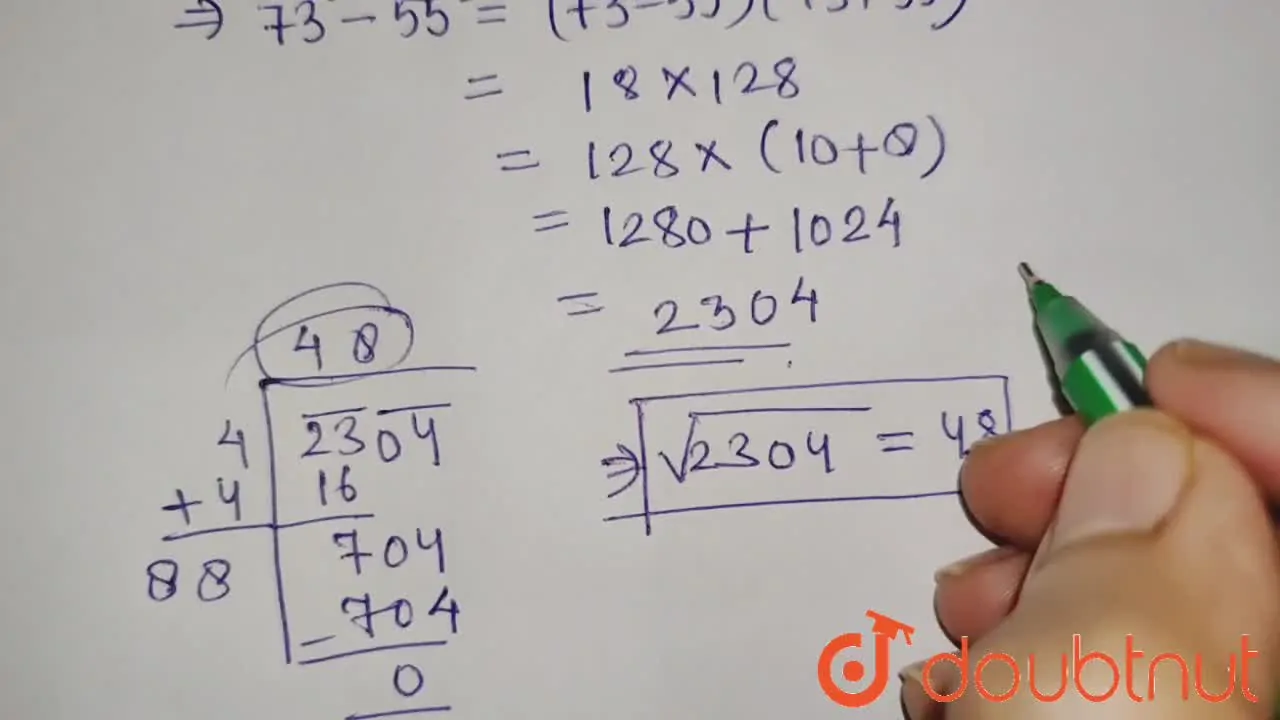 ⇒ 73 - 55 = (73-55)(73+55)
= 18×128
= 128 × (10+8)
= 1280 + 1024
= 2304
48
4 2304
+4 16
88 704
- 704
0
⇒ √2304 = 48
doubtnut